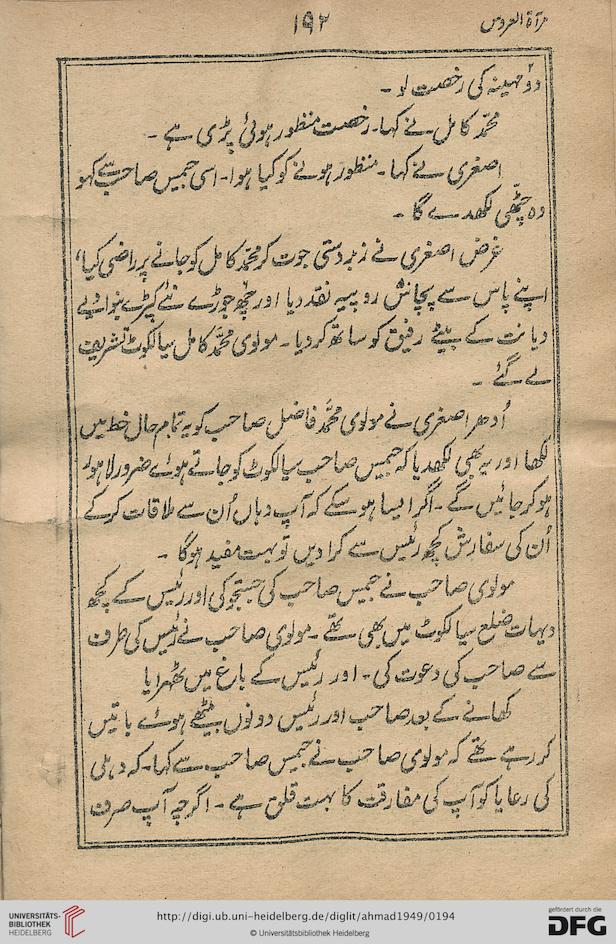 مرآۃ العروس
۱۹۲
دو مہینہ کی رخصت لو ۔
محمّد کامل نے کہا۔ رخصت منظور ہوئی پڑی ہے ۔
اصغری نے کہا ۔ منظور ہونے کو کیا ہوا۔ اسی جمیس صاحب سے کہو
وہ چٹّھی لکھدے گا ۔
غرض اصغری نے زبردستی جوت کر محمّد کامل کو جانے پر راضی کیا،
اپنے پاس سے پچاس روپیہ نقد دیا اور چھ جوڑے نئے کپڑے بنوا دیے
دیانت کے بیٹے رفیق کو ساتھ کر دیا ۔ مولوی محمّد کامل سیالکوٹ تشریف
لے گئے ۔
اُدھر اصغری نے مولوی محمّد فاضل صاحب کو یہ تمام حال خط میں
لکھا اور یہ بھی لکھدیا کہ جمیس صاحب سیالکوٹ کو جاتے ہوئے ضرور لاہور
ہو کر جائیں گے ۔ اگر ایسا ہو سکے کہ آپ وہاں اُن سے ملاقات کرکے
اُن کی سفارش کچھ رئیس سے کرا دیں تو بہت مفید ہوگا ۔
مولوی صاحب نے جمیس صاحب کی جستجو کی اور رئیس کے کچھ
دیہات ضلع سیالکوٹ میں بھی تھے ۔ مولوی صاحب نے رئیس کی طرف
سے صاحب کی دعوت کی ۔ اور رئیس کے باغ میں ٹھہرایا
کھانے کے بعد صاحب اور رئیس دونوں بیٹھے ہوئے باتیں
کر رہے تھے کہ مولوی صاحب نے جمیس صاحب سے کہا۔ کہ دہلی
کی رعایا کو آپ کی مفارقت کا بہت قلق ہے ۔ اگرچہ آپ صرف
UNIVERSITÄTS-
BIBLIOTHEK
HEIDELBERG
http://digi.ub.uni-heidelberg.de/diglit/ahmad1949/0194
© Universitätsbibliothek Heidelberg
gefördert durch die
DFG